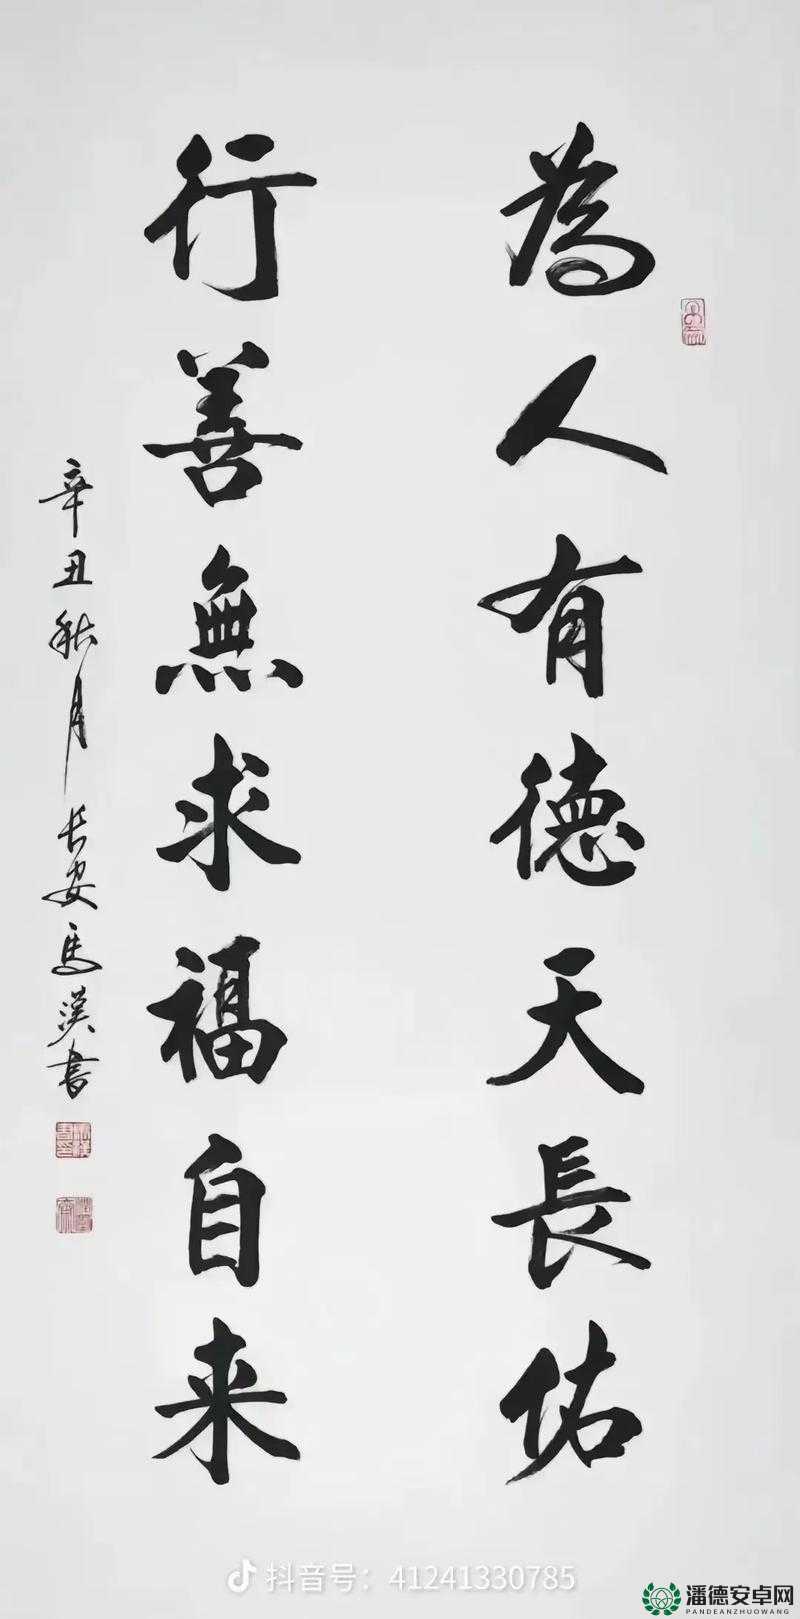 為人有德天長佑
行善無求福自来
辛丑秋月长安馬漢書
抖音号：41241330785
潘德安卓网
PANDEANZHUOWANG